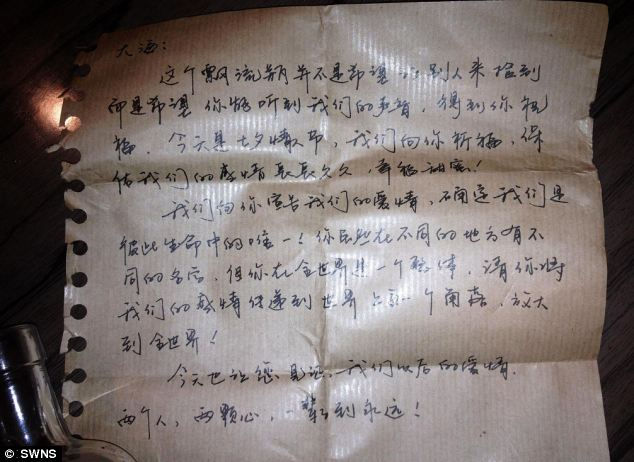 大海：
这个飘流瓶并不是希望让别人来捡到
而是希望你将听到我们的声音，得到你祝
福，今天是七夕情人节，我们向你祈福，保
佑我们的感情长长久久，幸福甜蜜！
我们向你宣告我们的爱情，确定我们是
彼此生命中的唯一！你虽然在不同的地方有不
同的名字，但你在全世界是一个整体，请你将
我们的感情传递到世界上每一个角落，放大
到全世界！
今天也让您见证，我们以后的爱情，
两个人，两颗心，一辈到永远！
© SWNS